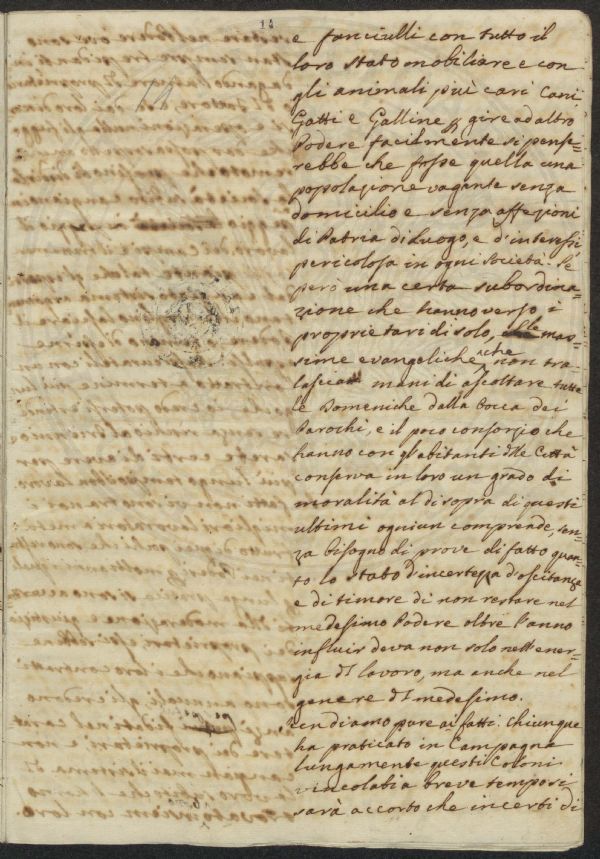 14
14
e fanciulli con tutto il
loro stato mobiliare e con
gli animali più cari Cani
Gatti e Galline gire ad altro
Podere facilmente si pense=
rebbe che fosse quella una
popolazione vagante senza
domicilio e senza affezioni
di Patria di Luogo, e d'interessi
pericolosa in ogni società. Se
però una certa subordina=
zione che hanno verso i
proprietari di solo, mas=
sime evangeliche, che non tra=
lasciano mai di ascoltare tutte
le Domeniche dalla bocca dei
Parochi, e il poco consorzio che
hanno con gl'abitanti delle Città
conserva in loro un grado di
moralità al di sopra di questi
ultimi ogniun comprende, sen=
za bisogno di prove di fatto quan=
to lo stato d'incertezza d'oscitanza
e di timore di non restare nel
medesimo Podere oltre l'anno
influir deva non solo nell'ener=
gia dl lavoro, ma anche nel
genere dl medesimo.
Vendiamo pure ai fatti. Chiunque
ha praticato in Campagna
lungamente questi Coloni
vincolabi a breve tempo si
sarà accorto che incerti di